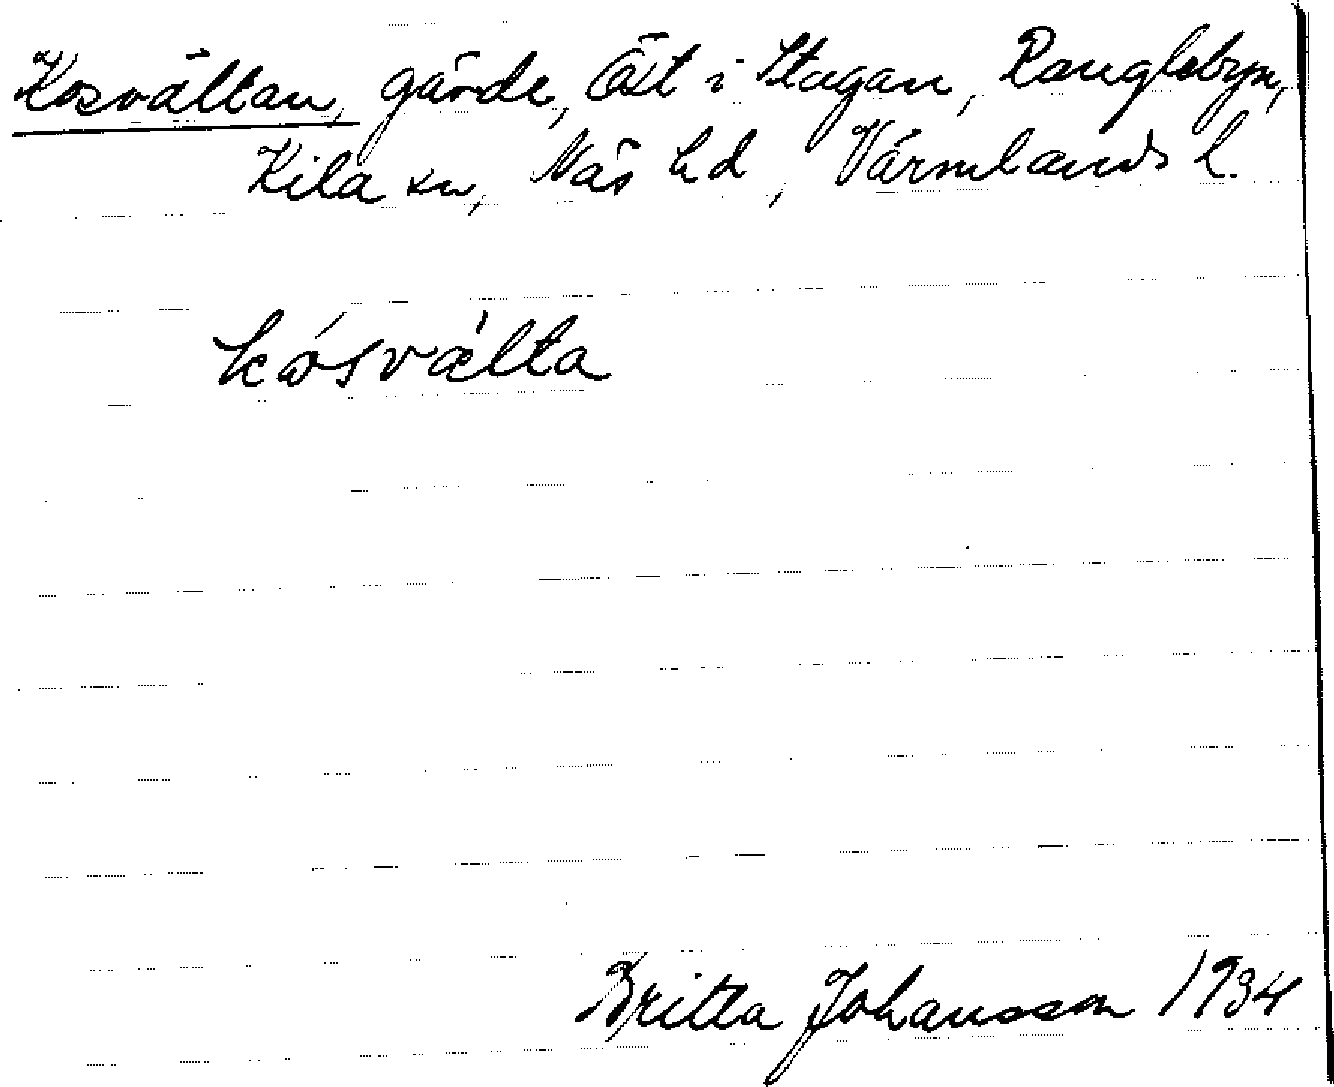 Kosvältan, gärde, Öst i Stugan, Ranglebyn,
Kila sn, Näs hd, Värmlands l.
kósvàlta
Britta Johansson 1934